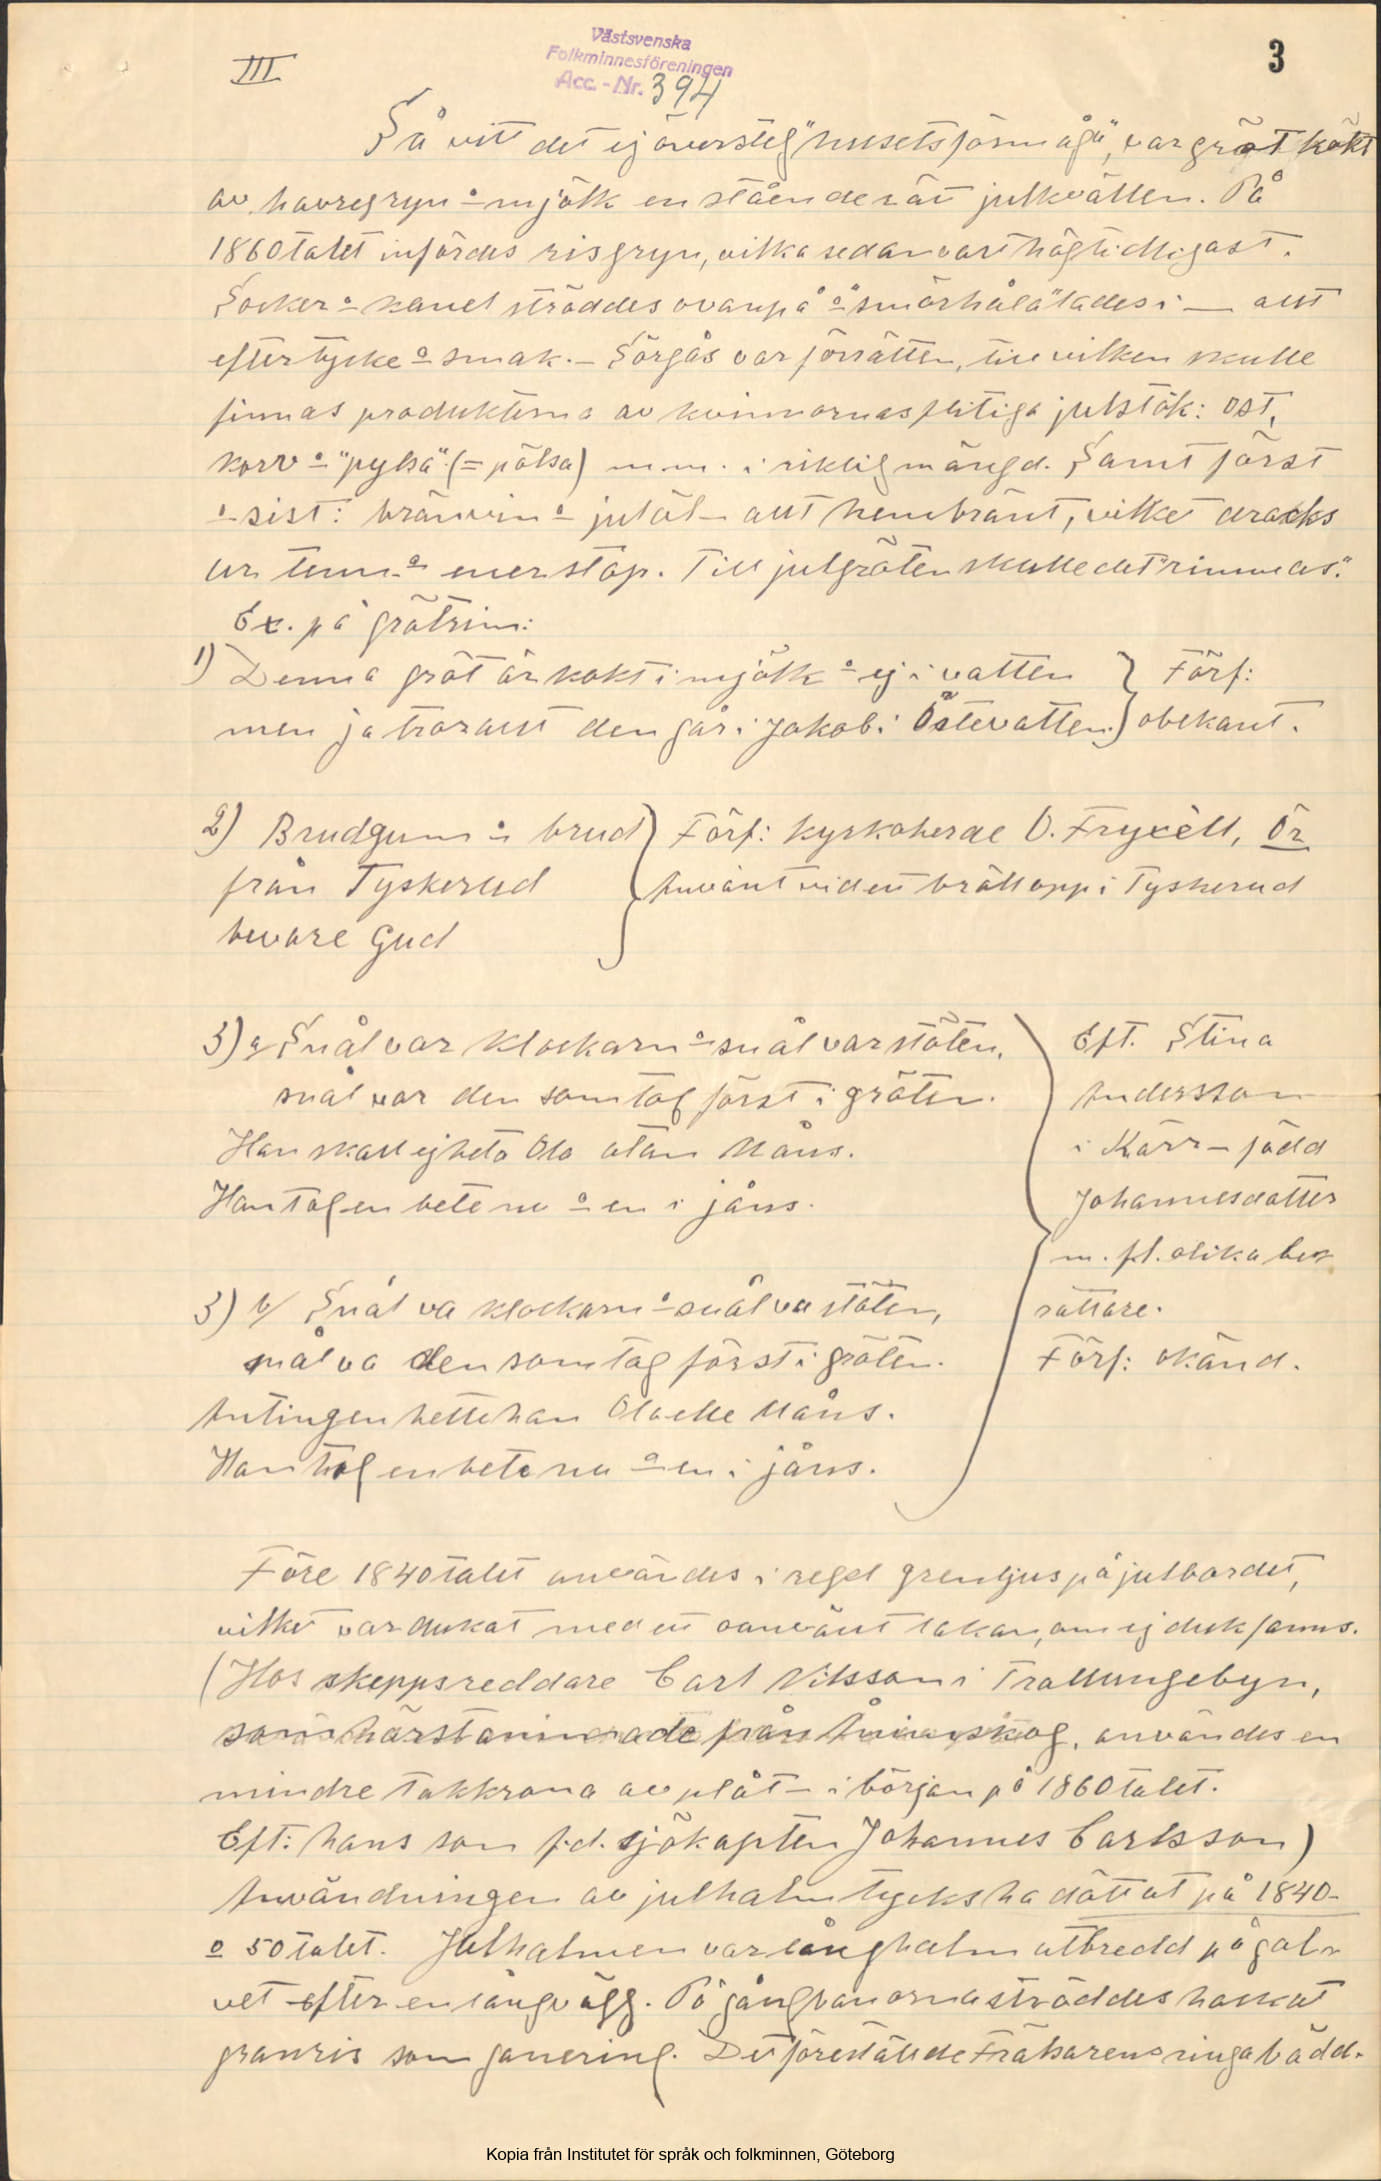 Västsvenska
Folkminnesföreningen
Acc.-Nr. 394
III
3
Så vitt det ej översteg "husets förmåga", var gröt kokt
av havregryn o mjölk en stående rätt julkvällen. På
1860talet infördes risgryn, vilka sedan vart högtidligast.
Socker o kanel ströddes ovanpå o "smörhåla" lades i — allt
efter tycke o smak. – Sörgås var förrätten, till vilken skulle
finnas produkterna av kvinnornas flitiga julstök: ost,
korv o "pylsa" (= pölsa) m.m. i riklig mängd. Samt först
o sist: brännvin o julöl – allt hembränt, vilket dracks
ur tenn- o enerstop. Till julgröten skulle det "rimmas".
Ex. på grötrim:
1) Denna gröt är kokt i mjölk o ej i vatten
men ja tror allt den går i Jakob i Östevatten.
Förf:
obekant.
2) Brudgum o brud
från Tyskerud
bevare Gud
Förf: kyrkoherde O. Fryxell, Ör
Använt vid ett bröllopp i Tyskerud
3) a Snål var klockarn o snål var stöten,
snål var den som tog först i gröten.
Han skall ej heta Ola utan Måns.
Han tog en bete nu o en i jåns.
3) b/ Snål va klockarn o snål va stöten,
snål va den som tog först i gröten.
Antingen hette han Ola elle Måns.
Han tog en bete nu o en i jåns.
Eft. Stina
Andersson
i Kärr – född
Johannesdotter
m. fl. olika be-
rättare.
Förf: okänd.
Före 1840talet användes i regel grenljus på julbordet,
vilket var dukat med ett oanvänt lakan, om ej duk fanns.
(Hos skeppsreddare Carl Nilsson i Trollungebyn,
som härstammade från Ånimskog, användes en
mindre takkrona av plåt – i början på 1860talet.
Eft: hans son f.d. sjökapten Johannes Carlsson)
Användningen av julhalm tycks ha dött ut på 1840-
o 50talet. Julhalmen var långhalm utbredd på gol-
vet efter en långvägg. På gångbanorna ströddes hackat
granris som garnering. Det föreställde Frälsarens ringa bädd.
Kopia från Institutet för språk och folkminnen, Göteborg